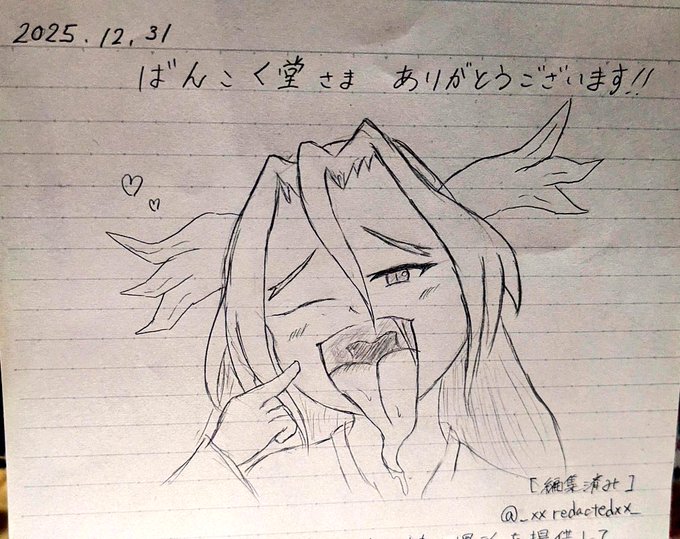 2025.12.31
ばんこく堂さま ありがとうございます!!
[編集済み]
@_xxredactedxx_
を提供して